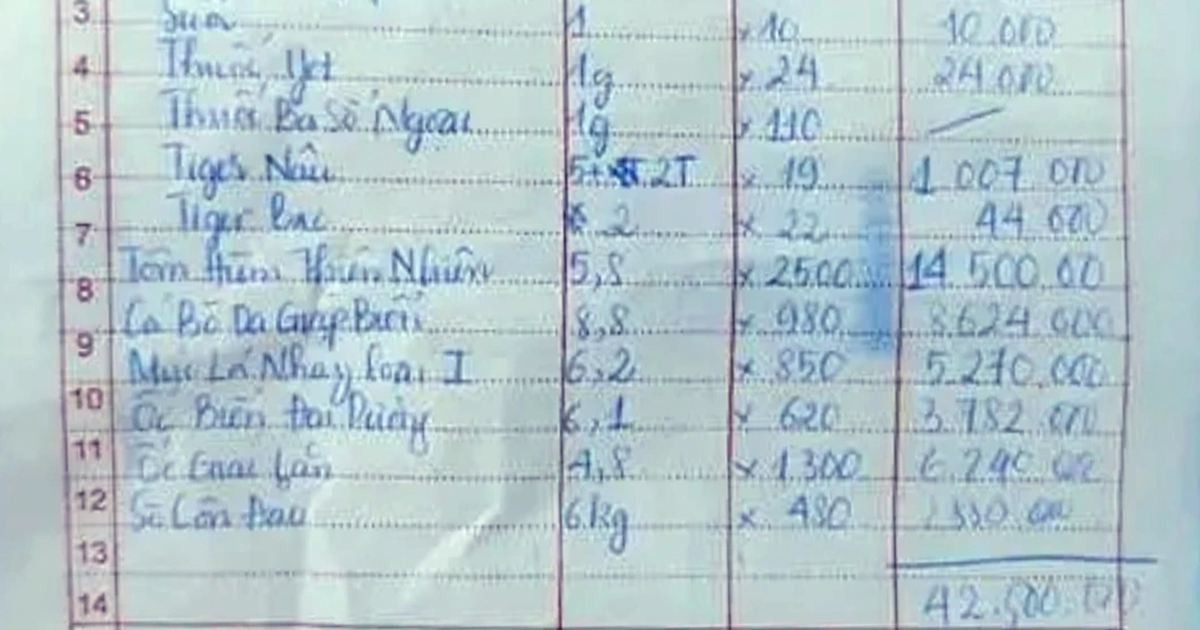 3 1 x 10 10.000
4 Thuốc Jet 1g x 24 24.000
5 Thuốc Ba Số Ngoại 1g x 110
6 Tiger Nâu 5t 2T x 19 1 007 000
7 Tiger Bạc 2 x 22 44 000
8 Tôm Hùm Thiên Nhiên 5,8 x 2500 14 500.00
9 Cá Bò Da Giáp Biển 8,8 x 980 8.624 000
10 Mực Lá Nhảy Loại I 6,2 x 850 5.270.000
11 Ốc Biển Đại Dương 6,1 x 620 3.782 000
12 Ốc Lần 4,8 x 1.300 6.240
13 Sò 6kg x 480
14 42.500.000